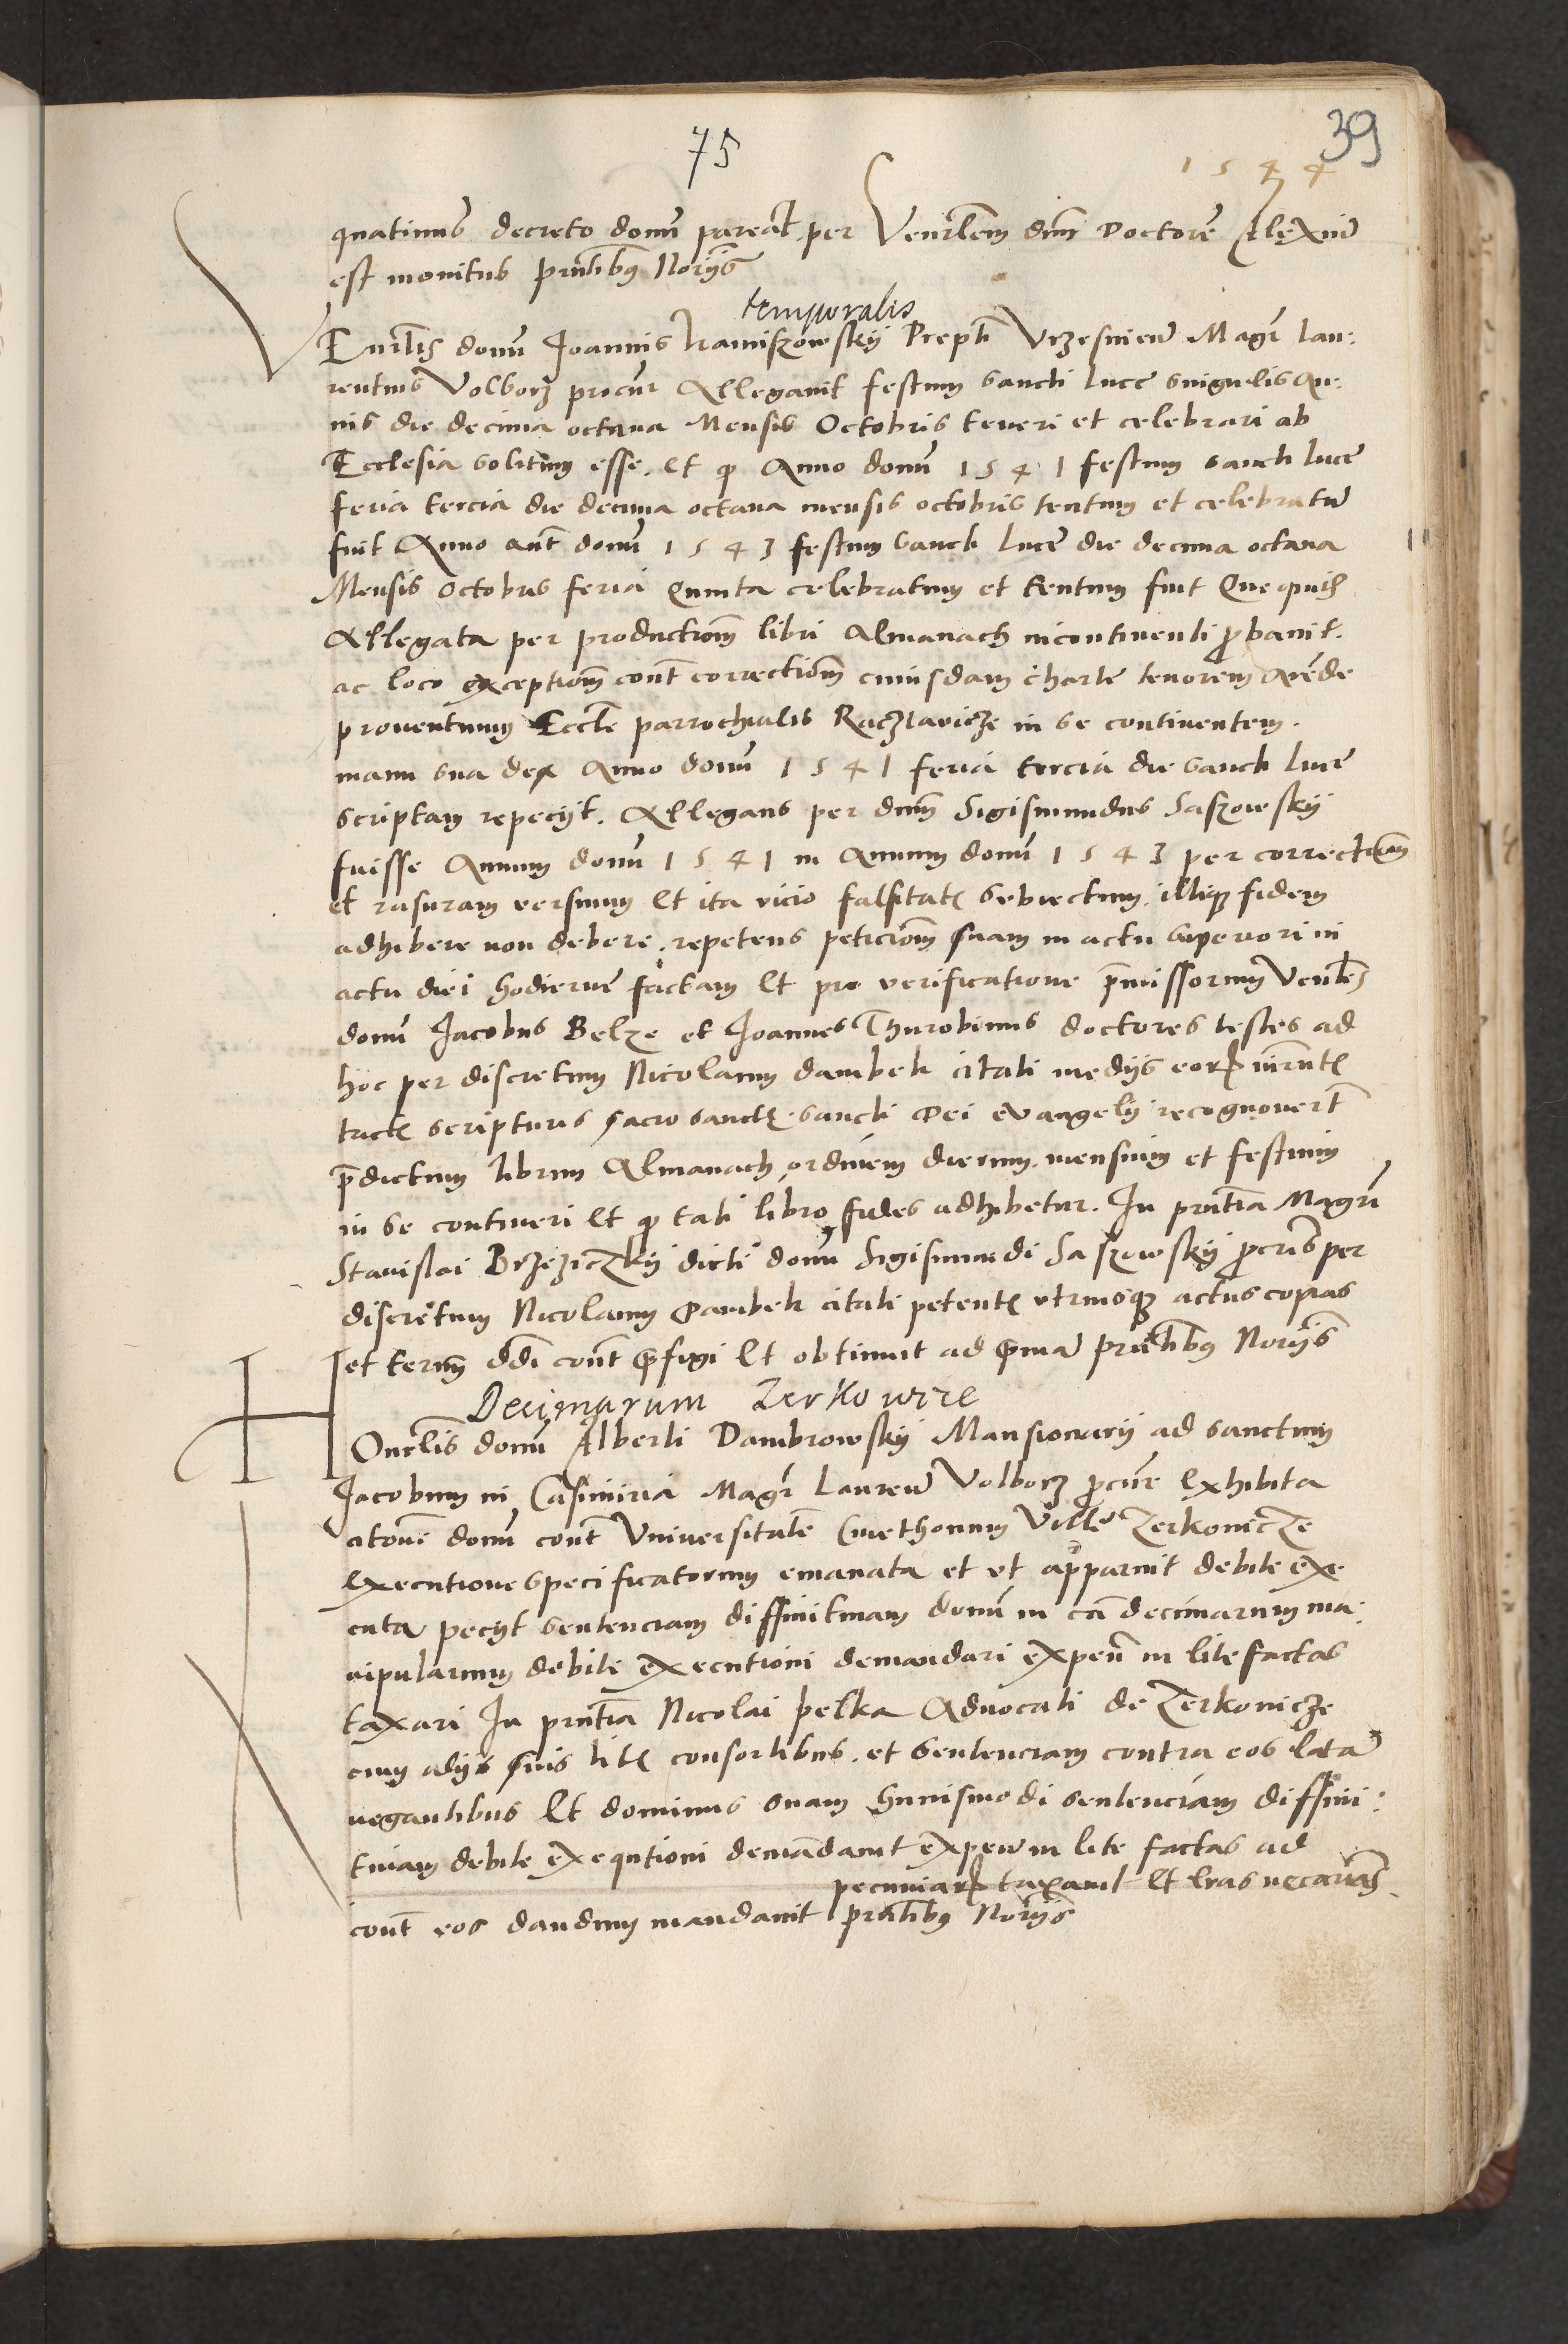 75
39
1544
quatinus decreto domini pareat per Venerlem dnm Doctorē Alexiū
est monitus pntibus Norijs
temporalis
VEnrlis domi Joannis Kamiszowskij Prepti Vrzesnien Magr lau:
rentius Volborz procur Allegavit festum sancti luce singulis An:
nis die decima octava Mensis Octobris teneri et celebrari ab
Ecclesia solitum esse. Et q Anno domi 1541 festum sancti luce
feria tercia die decima octava mensis octobris tentum et celebratū
fuit Anno aut domi 1543 festum sancti luce die decima octava
Mensis Octobris feria Quinta celebratum et tentum fuit Que quid
Allegata per productiom libri Almanach incontinenti probavit.
ac loco exceptiom cont correctiom cuiusdam charte tenorem Arēde
proventuum Eccle parrochialis Raczlavicze in se continentem.
manu sua de Anno domi 1541 feria tercia die sancti luce
scriptam repecijt. Allegans per dnm Sigismundus Saszowskij
fuisse Annum domi 1541 in Annum domi 1543 per correctiom
et rasuram versuum Et ita vicio falsitatis subiectum. illique fidem
adhibere non debere. repetens peticiom suam in actu superiori in
actu diei hodierne factam Et pro verificatione pmissorum Venles
domi Jacobus Belze et Joannes Thurobinus doctores testes ad
hoc per discretum Nicolaum dambek citati medijs eor iurmtis
tactis scripturis sacrosanctis sancti Dei evangelij recognovert
pdictum librum Almanach ordinem dierum. mensium et festium
in se contineri Et q tali libro fides adhibetur. In pntia Magri
Stanislai Brzeziczkij dicti domi Sigismundi Saszowskij pcris per
discretum Nicolaum Dambek citati petentis utriusque actus copias
et termn ddi cont pfigi Et obtinuit ad pma pntibus Norijs
Decimarum Zerkowice
HOnrlis domi Alberti Dambrowskij Mansionarij ad sanctum
Jacobum in Casimiria Magr Lauren Volborz pcur Exhibita
citone domi cont Universitate Cmethonum Ville Zerkonicze
Executione specificatorum emanata et ut apparuit debite exe
cuta pecijt sentenciam diffinitivam domi in cā decimarum ma:
nipularium debite executioni demandari expen in lite factas
taxari In pntia Nicolai pelka Advocati de Zerkonicze
cum alijs suis litis consortibus. et sentenciam contra eos lata
negantibus Et dominus suam huiusmodi sentenciam diffini:
tivam debite exequtioni demādavit expen in lite factas ad
pecuniar taxavit Et lras
cont eos dandum mandavit pntibus Norijs